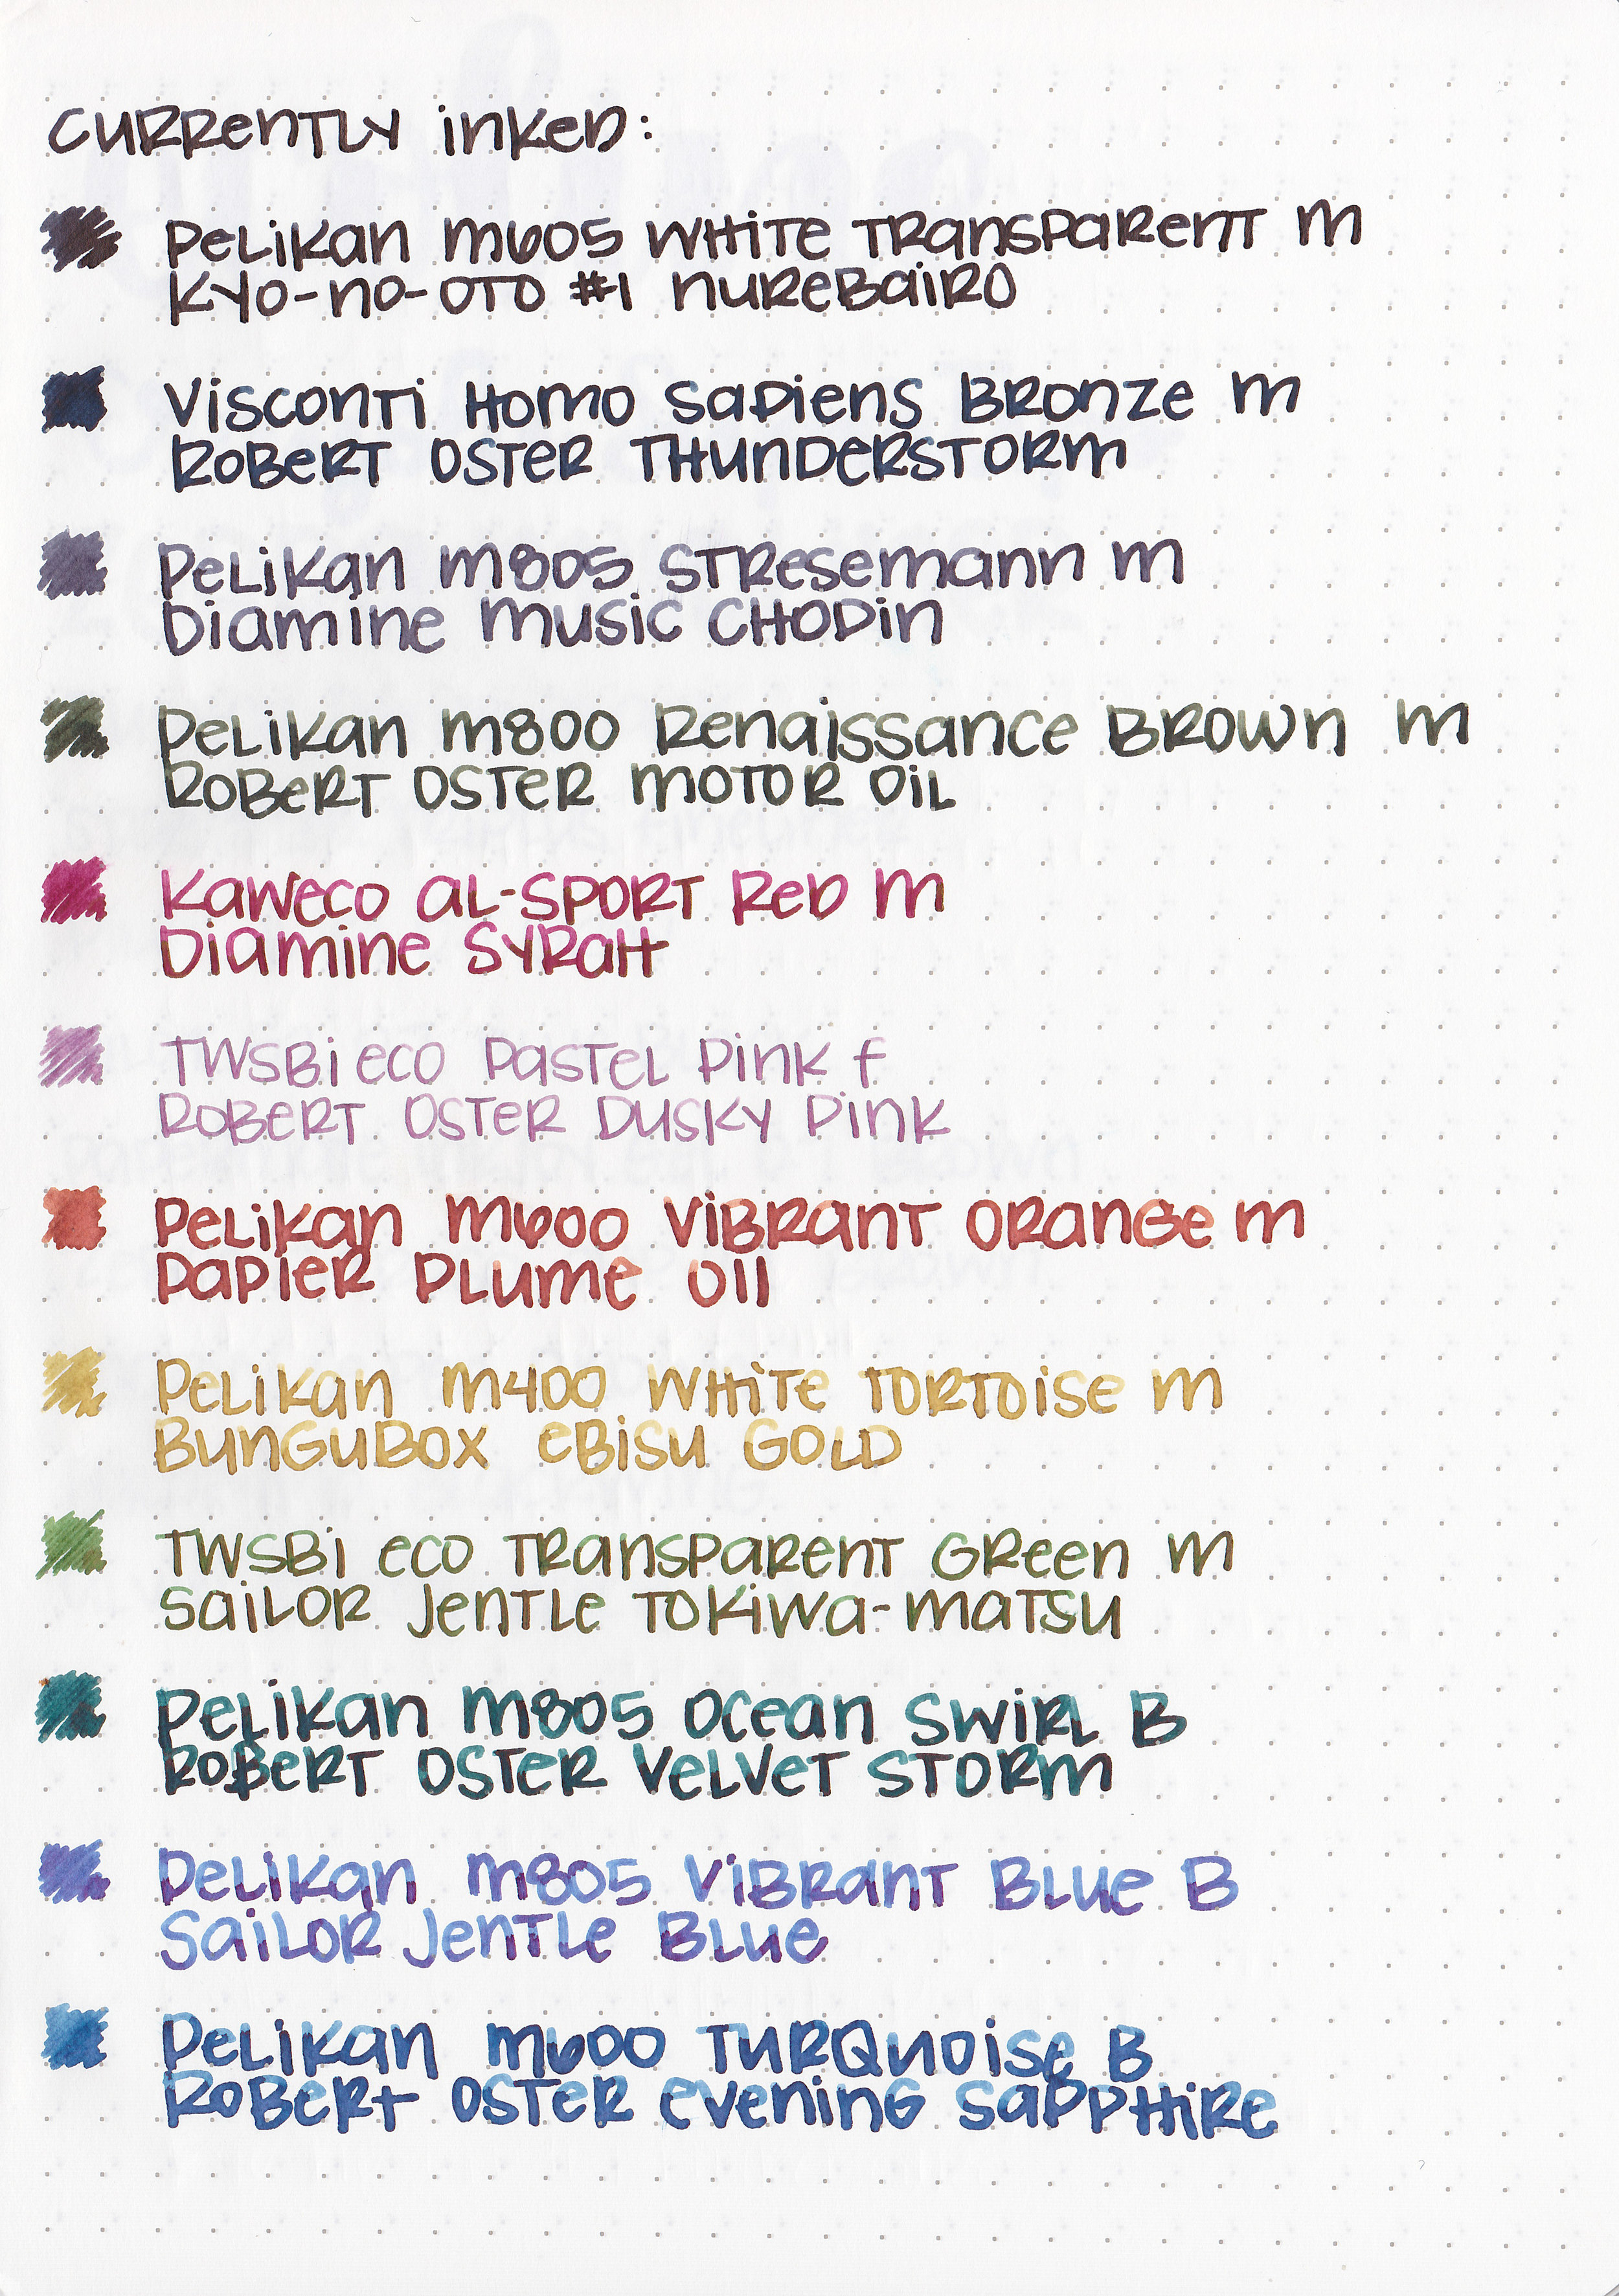 Currently inked:
Pelikan M605 White Transparent M
Kyo-no-oto #1 Nurebairo
Visconti Homo Sapiens Bronze M
Robert Oster Thunderstorm
Pelikan M805 Stresemann M
Diamine Music Chopin
Pelikan M800 Renaissance Brown M
Robert Oster Motor Oil
Kaweco AL-Sport Red M
Diamine Syrah
TWSBI ECO Pastel Pink F
Robert Oster Dusky Pink
Pelikan M600 Vibrant Orange M
Papier Plume 011
Pelikan M400 White Tortoise M
Bungubox Ebisu Gold
TWSBI ECO Transparent Green M
Sailor Jentle Tokiwa-matsu
Pelikan M805 Ocean Swirl B
Robert Oster Velvet Storm
Pelikan M805 Vibrant Blue B
Sailor Jentle Blue
Pelikan M600 Turquoise B
Robert Oster Evening Sapphire